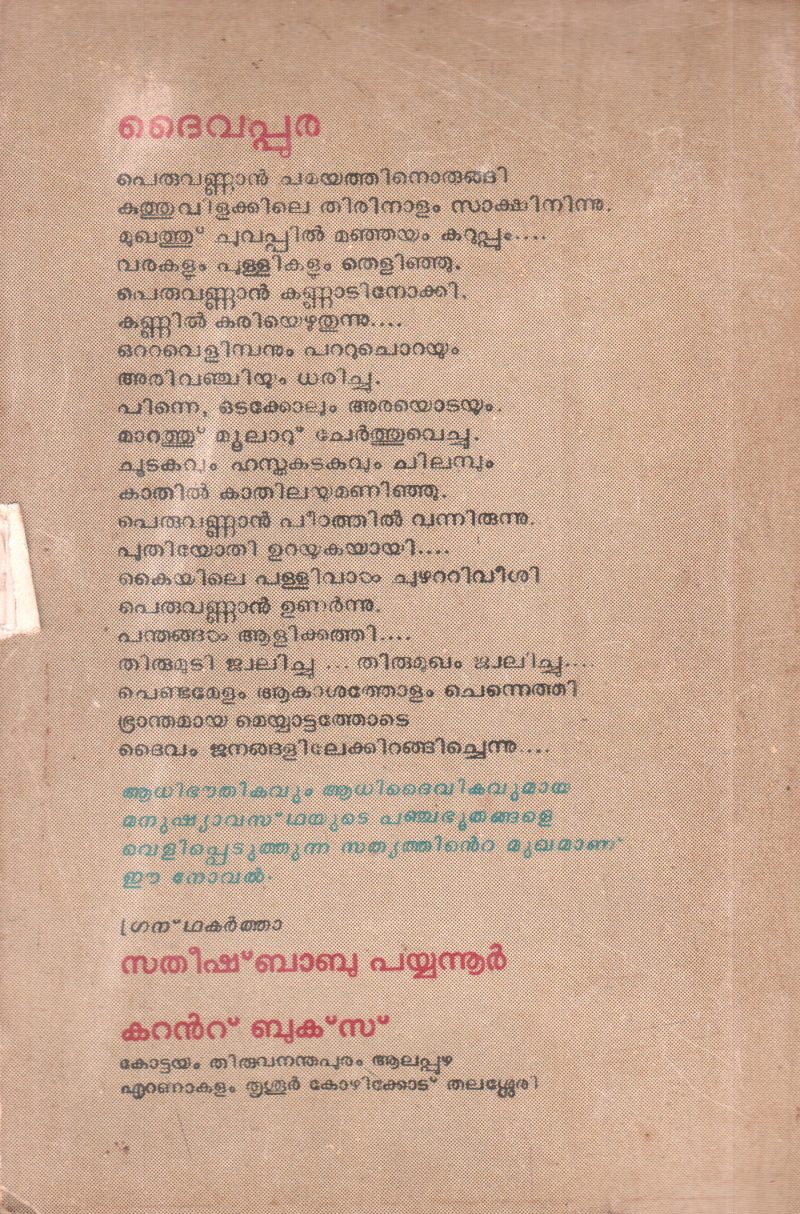 ദൈവപ്പുര
പെരുവണ്ണാൻ ചമയത്തിനൊരുങ്ങി
കുത്തുവിളക്കിലെ തിരിനാളം സാക്ഷിനിന്നു.
മുഖത്തു് ചുവപ്പിൽ മഞ്ഞയും കറുപ്പും....
വരകളും പുള്ളികളും തെളിഞ്ഞു.
പെരുവണ്ണാൻ കണ്ണാടിനോക്കി,
കണ്ണിൽ കരിയെഴുതുന്നു....
ഒററവെളിമ്പനും പററുചൊറയും
അരിവഞ്ചിയും ധരിച്ചു.
പിന്നെ, ഒടക്കോലും അരയൊടയും.
മാറത്തു് മൂലാറു് ചേർത്തുവെച്ചു.
ചൂടകവും ഹസ്തകടകവും ചിലമ്പും
കാതിൽ കാതിലയുമണിഞ്ഞു.
പെരുവണ്ണാൻ പീഠത്തിൽ വന്നിരുന്നു.
പുതിയോതി ഉറയുകയായി....
കൈയിലെ പള്ളിവാൾ ചുഴററിവീശി
പെരുവണ്ണാൻ ഉണർന്നു.
പന്തങ്ങൾ ആളിക്കത്തി....
തിരുമുടി ജ്വലിച്ചു ... തിരുമുഖം ജ്വലിച്ചു....
ചെണ്ടമേളം ആകാശത്തോളം ചെന്നെത്തി
ഭ്രാന്തമായ മെയ്യാട്ടത്തോടെ
ദൈവം ജനങ്ങളിലേക്കിറങ്ങിച്ചെന്നു....
ആധിഭൗതികവും ആധിദൈവികവുമായ
മനുഷ്യാവസ്ഥയുടെ പഞ്ചഭൂതങ്ങളെ
വെളിപ്പെടുത്തുന്ന സത്യത്തിൻെറ മുഖമാണ്
ഈ നോവൽ.
ഗ്രന്ഥകർത്താ
സതീഷ്ബാബു പയ്യന്നൂർ
കറൻറ് ബുക്സ്
കോട്ടയം തിരുവനന്തപുരം ആലപ്പുഴ
എറണാകുളം തൃശൂർ കോഴിക്കോട് തലശ്ശേരി